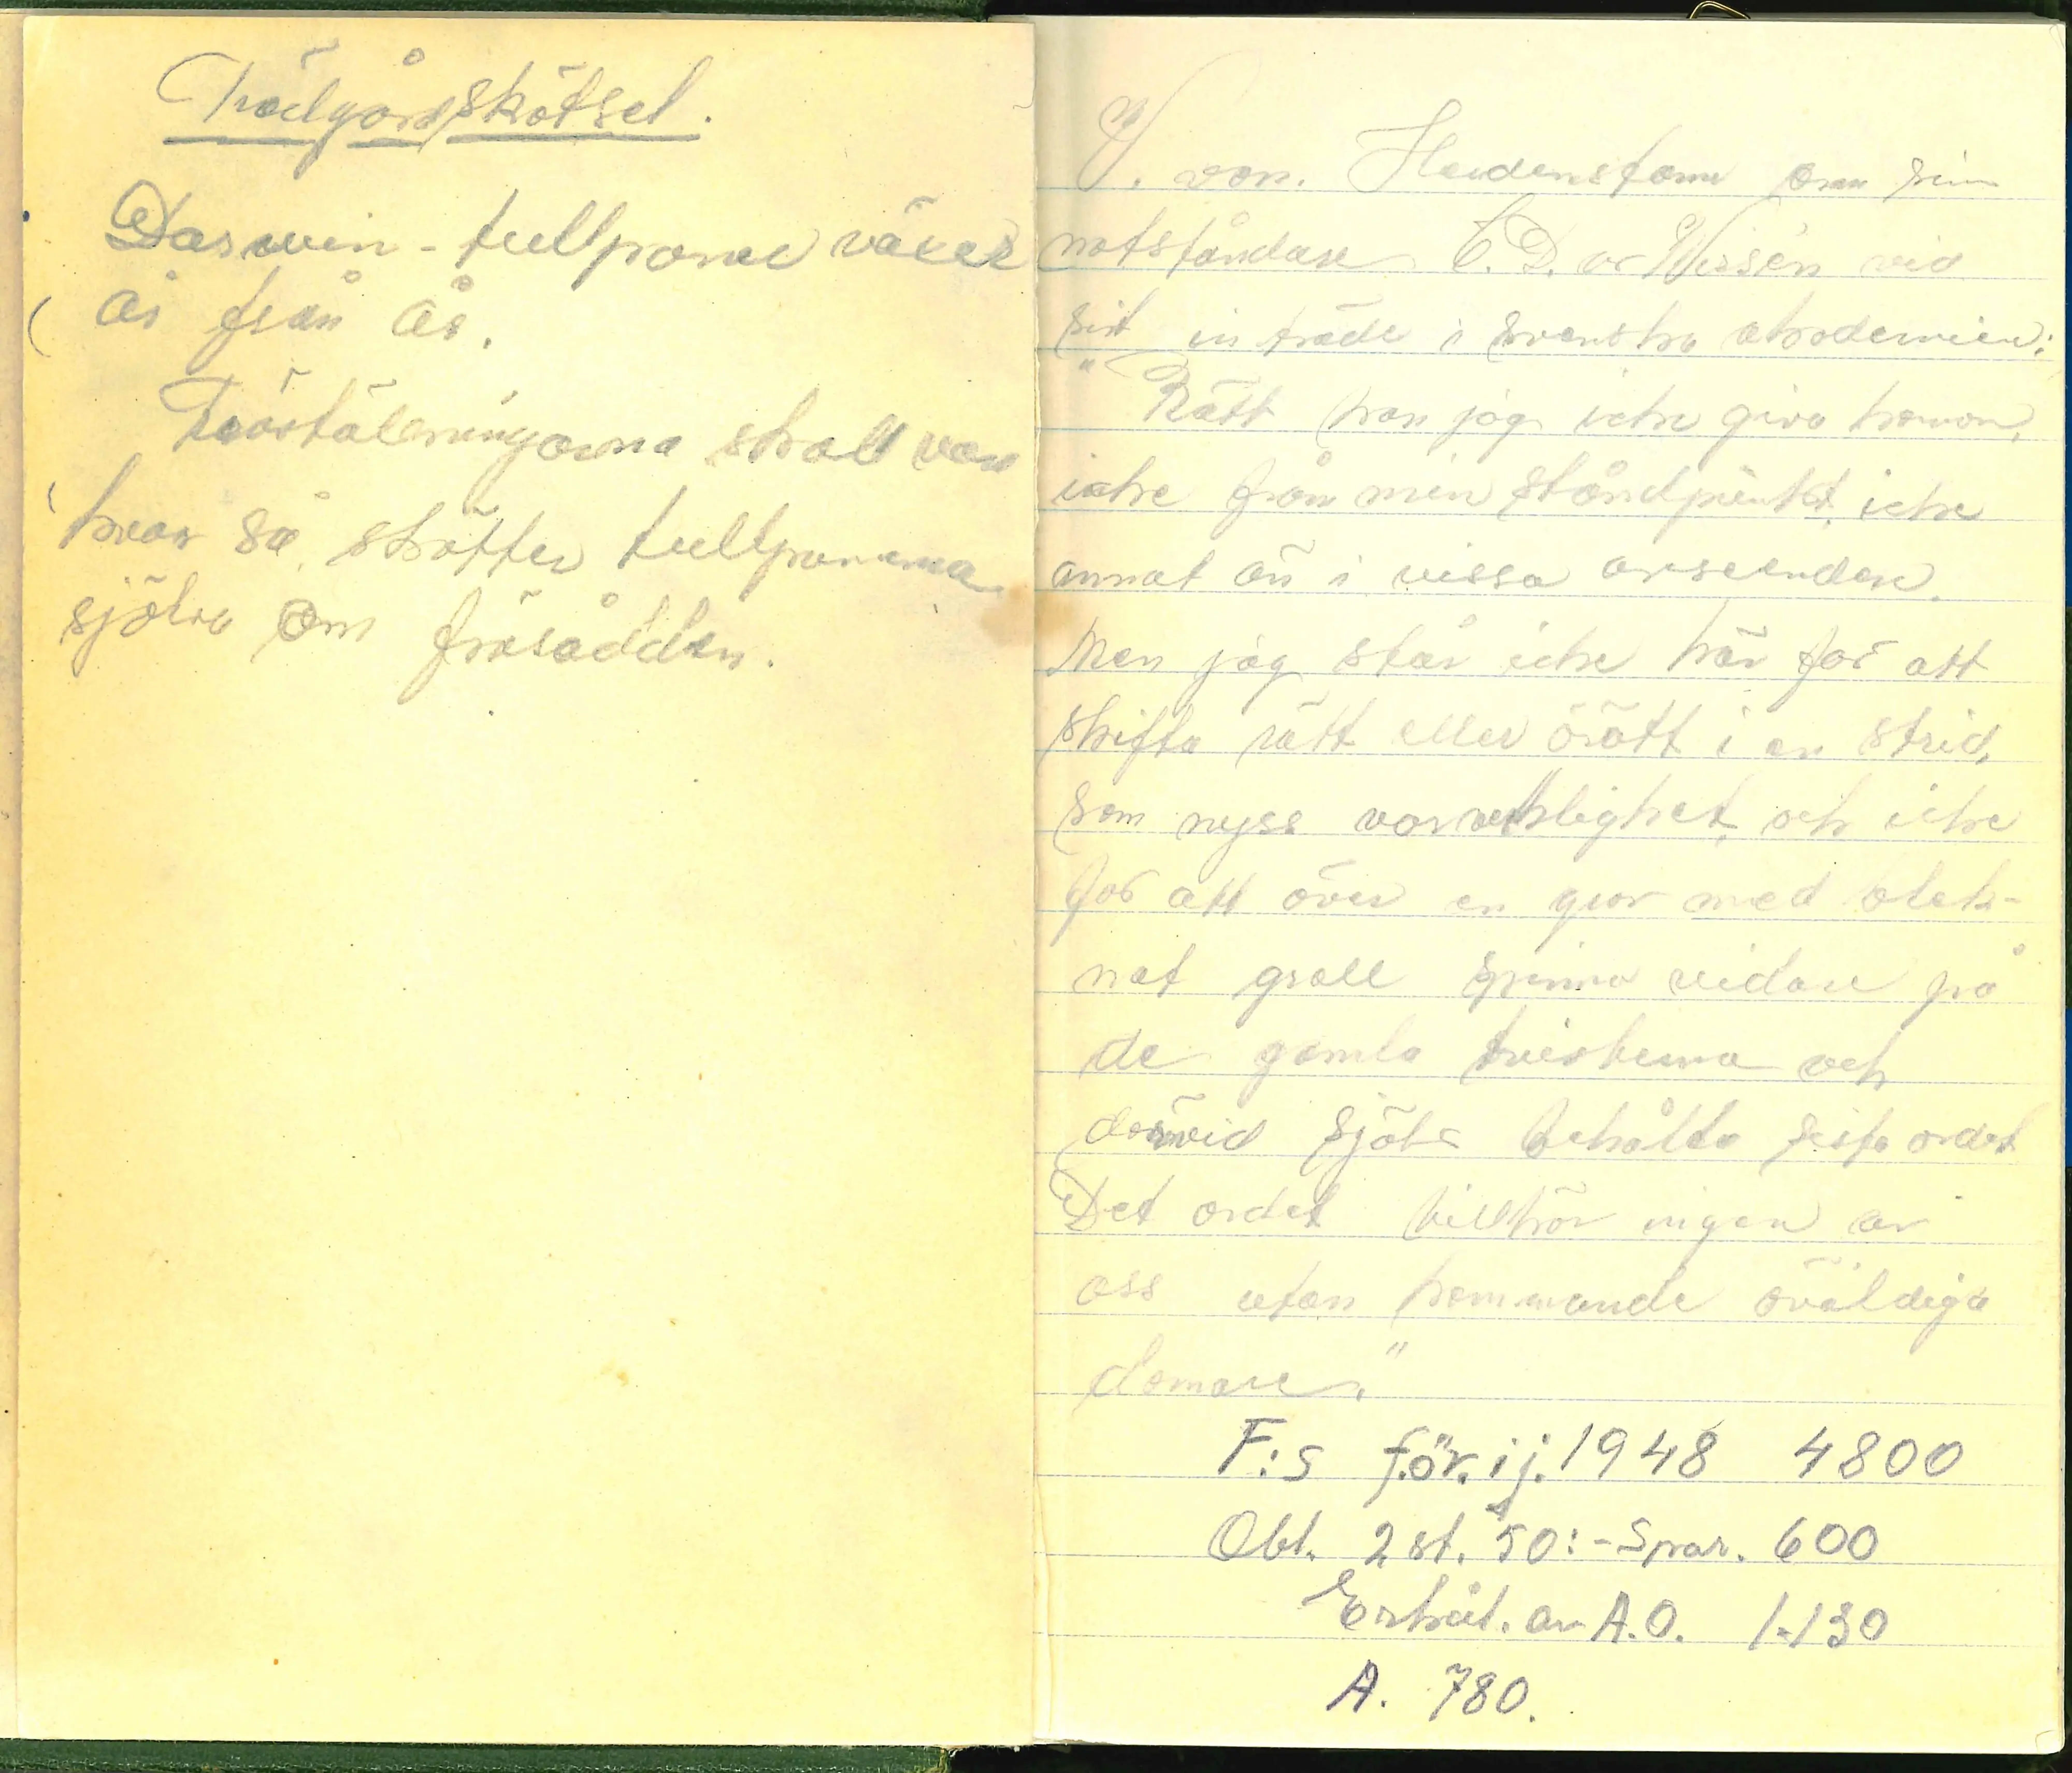 Trädgårdsskötsel.
Darwin-tullpaner växer
år från år.
Fröställningarna skall vara
kvar så, skötter tullpanerna
själva om frösådden.
V. von. Heidenstam om sin
motståndare C. D. av Wirsén vid
sitt inträde i svenska akademien:
"Rätt kan jag icke giva honom,
icke från min ståndpunkt, icke
annat än i vissa avseenden.
Men jag står icke här för att
skifta rätt eller orätt i en strid,
som nyss var verklighet, och icke
för att över en grav med blek-
nat grall spinna vidare på
de gamla tvisterna och
därvid själv behålla sista ordet
Det ordet tillhör ingen av
oss utan kommande oväldiga
domare."
F:s för. ij. 1948 4800
Obl. 2 st. 50:- Spar. 600
Erhål. av A.O. 1.130
A. 780.